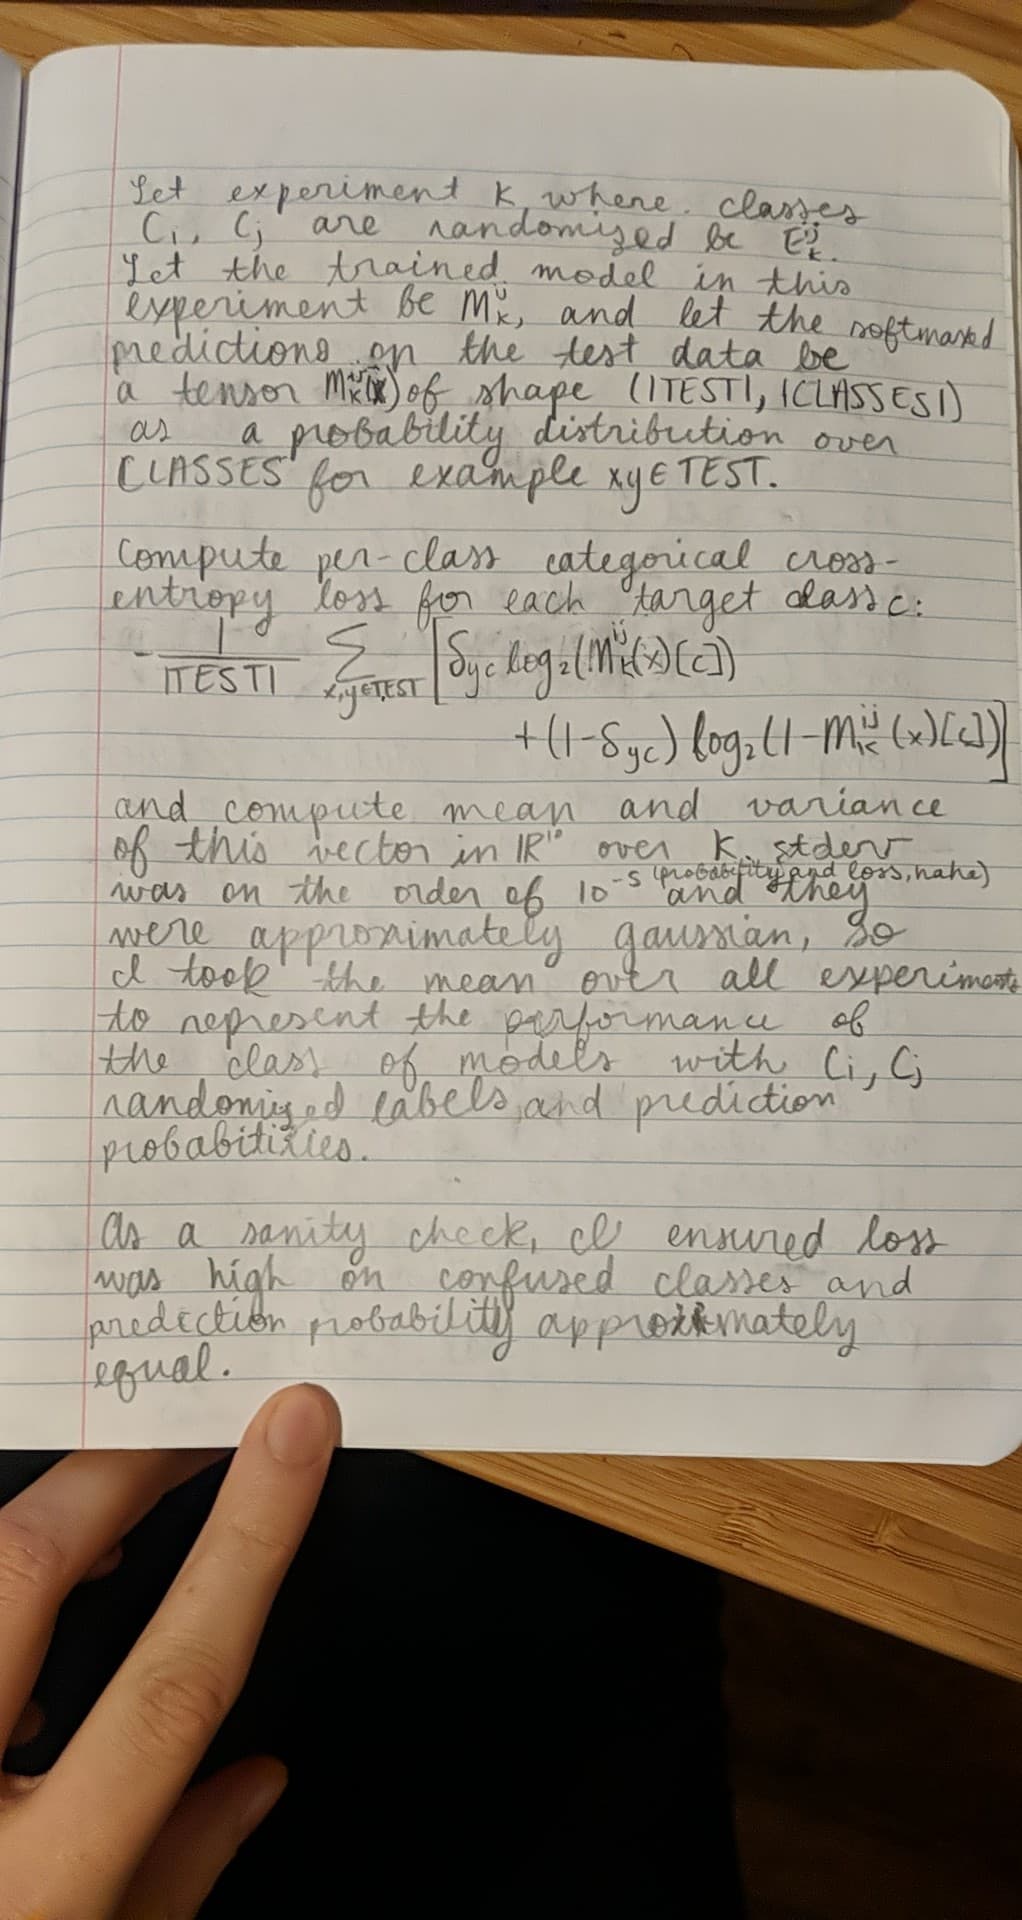 Let experiment K where classes
Ci, Cj are randomized be E_k^ij.
Let the trained model in this
experiment be M_k^ij, and let the softmaxed
predictions on the test data be
a tensor M_k^ij(x) of shape (|TEST|, |CLASSES|)
as a probability distribution over
CLASSES for example x,y ∈ TEST.
Compute per-class categorical cross-
entropy loss for each target class c:
-1/|TEST| Σ_{x,y∈TEST} [δ_yc log₂(M_k^ij(x)[c])
+(1-δ_yc) log₂(1-M_k^ij(x)[c])]
and compute mean and variance
of this vector in ℝ¹⁰ over K. stderr
(probability and loss, haha)
was on the order of 10⁻⁵ and they
were approximately gaussian, so
I took the mean over all experiments
to represent the performance of
the class of models with Ci, Cj
randomized labels, and prediction
probabitities.
As a sanity check, I ensured loss
was high on confused classes and
prediction probability approximately
equal.